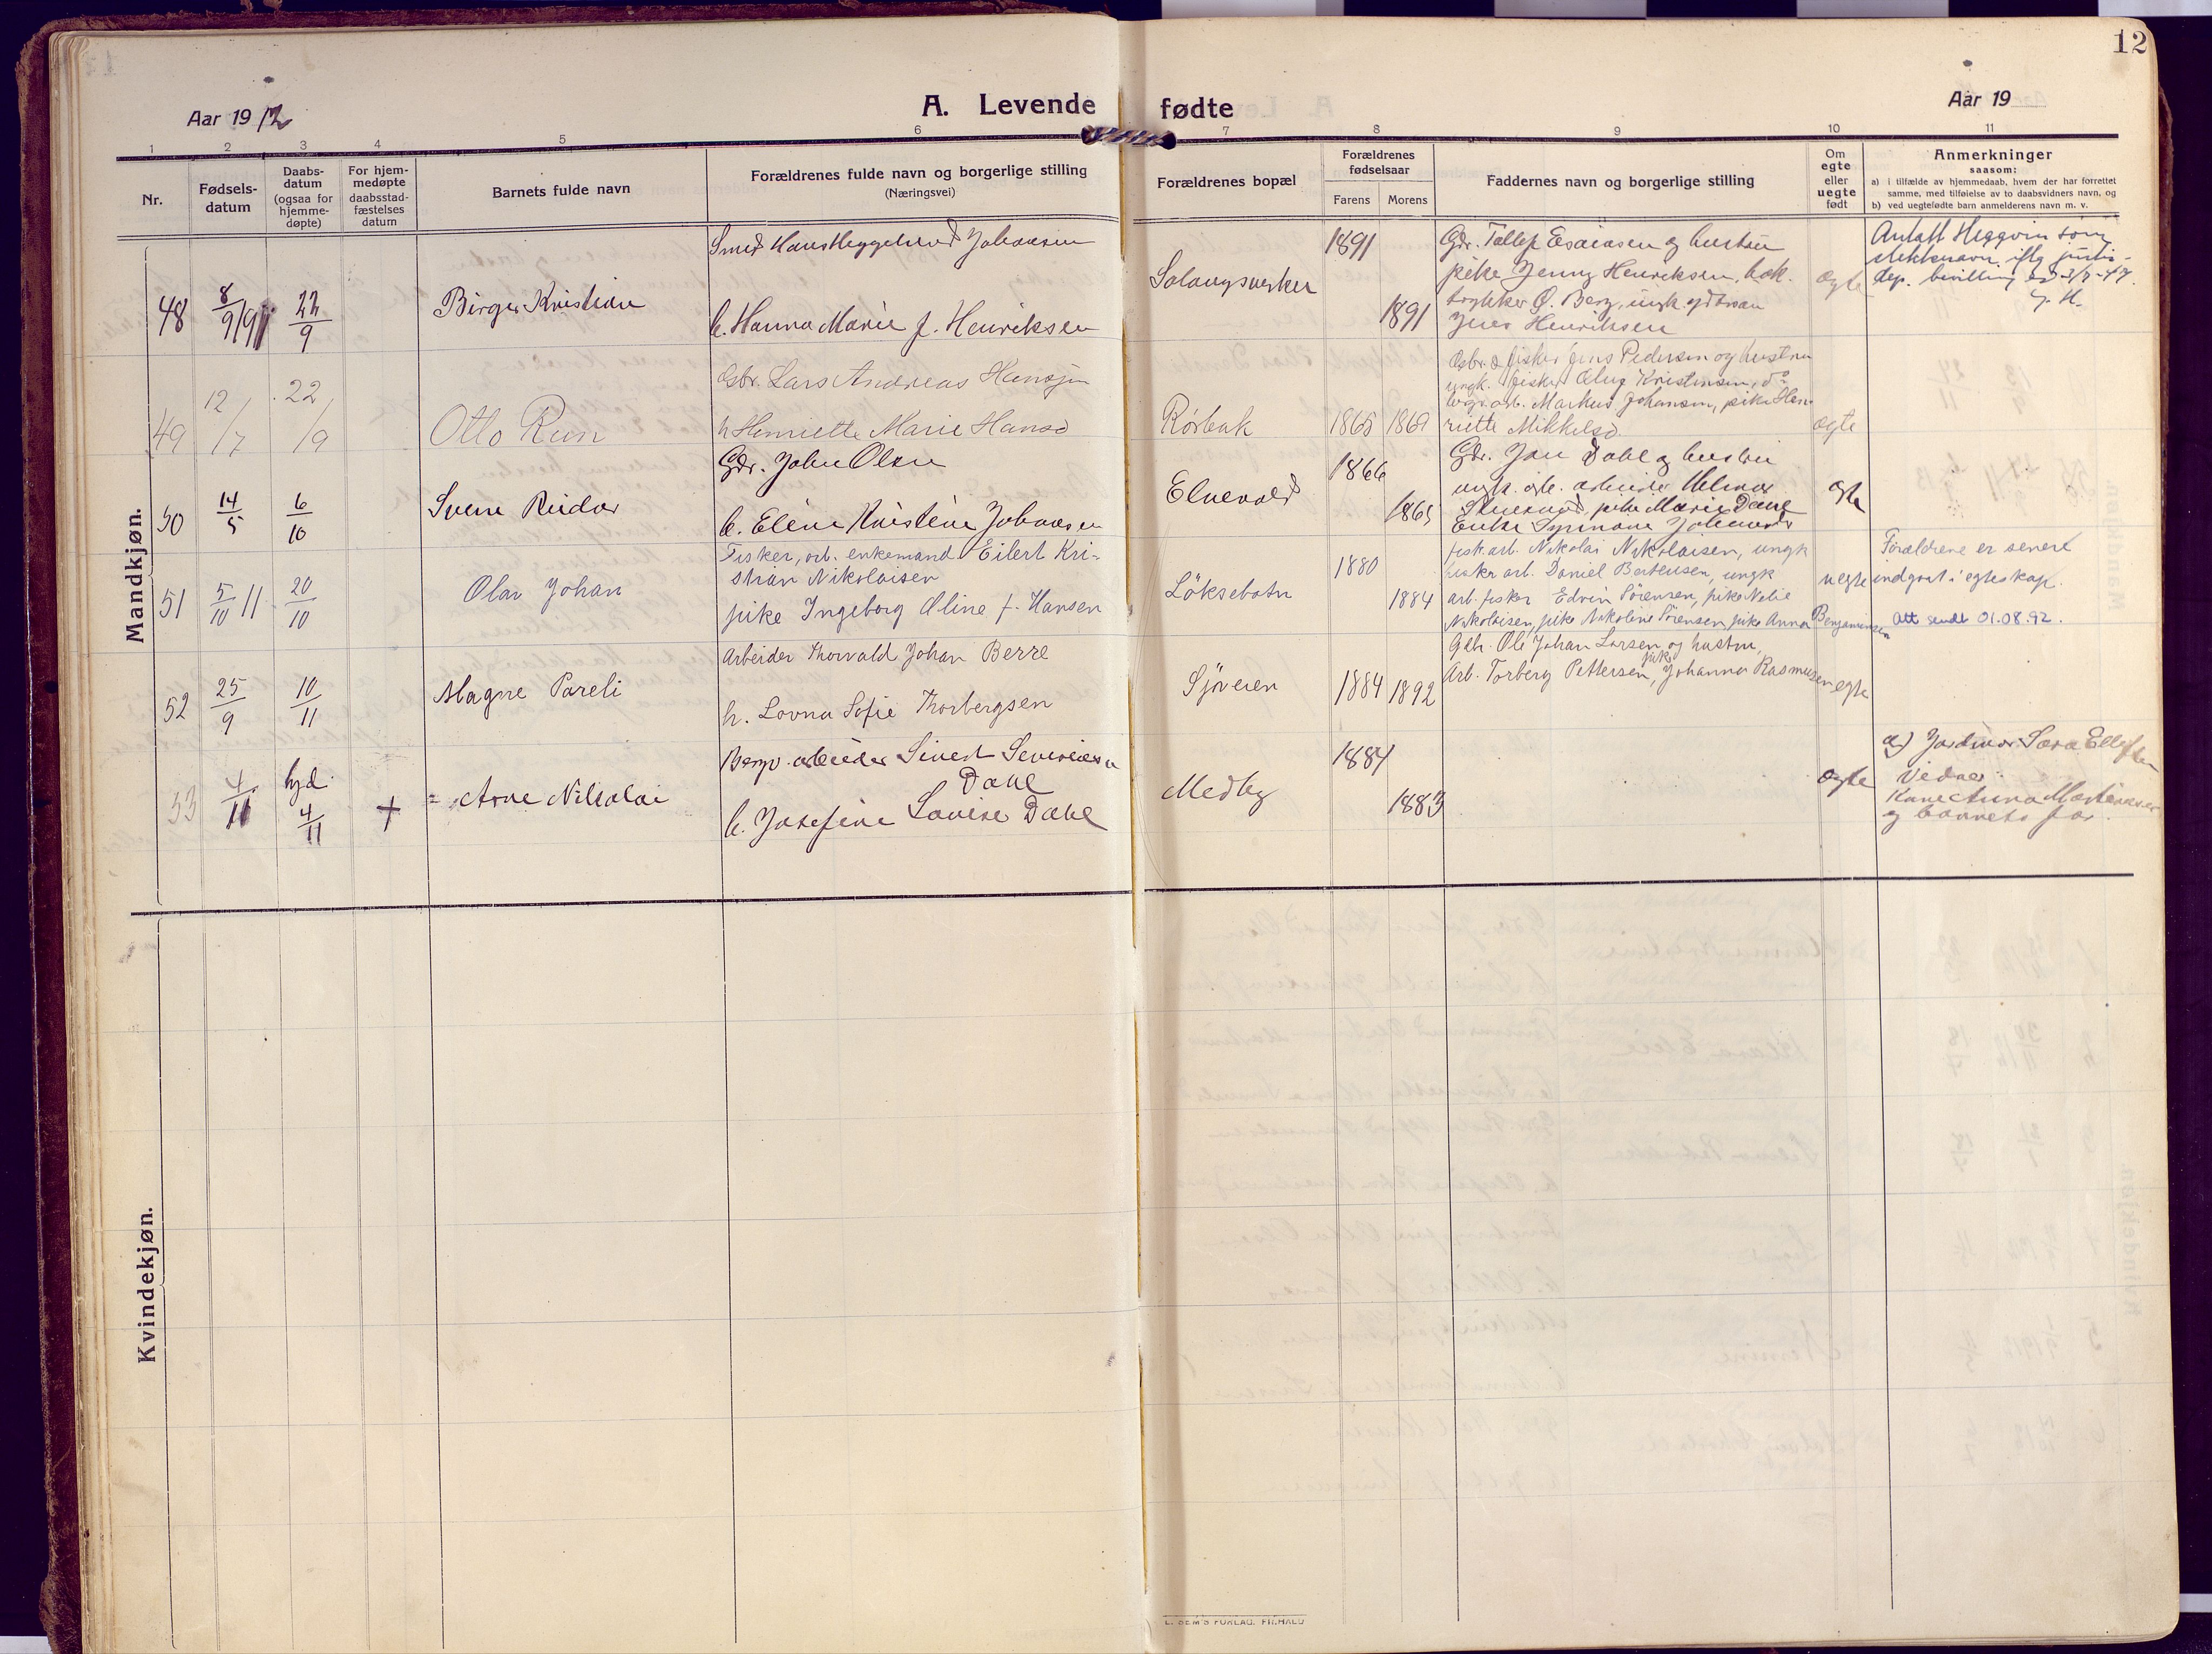 12
Aar 1912
A. Levende fødte
Aar 19
1 2 3 4 5 6 7 8 9 10 11
Nr.
Fødsels-
datum
Daabs-
datum
(ogsaa for
hjemme-
døpte)
For hjem-
medøpte
daabsstad-
fæstelses
datum
Barnets fulde navn
Forældrenes fulde navn og borgerlige stilling
(Næringsvei)
Forældrenes bopæl
Forældrenes
fødselsaar
Farens Morens
Faddernes navn og borgerlige stilling
Om
egte
eller
uegte
født
Anmerkninger
saasom:
a) i tilfælde av hjemmedaab, hvem der har forrettet
samme, med tilføielse av to daabsvidners navn, og
b) ved uegtefødte barn anmelderens navn m. v.
Mandkjøn.
48
8/9
22/9
Birger Kristian
Smed Hans Heggelund Johansen
h. Hanna Marie f. Henriksen
Salangsverket
1891
1891
Gdr. Tollef Esaiasen og hustru
pike Jenny Henriksen, bok-
trykker O. Berg, ungk.
Jens Henriksen
egte
Antatt Heggvin som
slektsnavn iflg justis-
dep. bevilling
49
12/7
22/9
Otto
Lars Andreas Hansen
h Henriette Marie Hansd
Rørbak
1865 1869
fisker Jens Pedersen og hustru
ungk. fisker Oluf Kristensen, do
arb. Markus Johansen, pike Hen-
riette Mikkelsd.
egte
50
14/5
6/10
Sverre Reidar
Gdr. John Olsen
h. Eline Kristine Johnsen
Elvevold
1866
1865
Gdr. Jon Dahl og hustru
ungk. arbeider Helmer
pike Marie Dahl
Enke
egte
51
5/10 11
20/10
Olav Johan
Fisker, arb. enkemand Eilert Kri-
stian Nikolaisen
pike Ingeborg Oline f. Hansen
Løksebotn
1880
1884
fisk.arb. Nikolai Nikolaisen, ungk
fisker arb. Daniel Berteusen, ungk
arb. fisker Edvin Sørensen, pike Nelie
Nikolaisen, pike Nikoline Sørensen, pike Anna Benjaminsen
uegte
Forældrene er senere
indgaat i egteskap.
Att sendt 01.08.92.
52
25/9
10/11
Magne Pareli
Arbeider Thorvald Johan Berre
h. Lovna Sofie Thorbergsen
Sjøveien
1884 1892
Gbr. Ole Johan Larsen og hustru,
Arb. Torberg Pettersen, pike Johanna Rasmussen
egte
53
4/11
hjd.
4/11
+
Arne Nikolai
Bergv. arbeider Sivert Severinsen
Dahl
h. Josefine Lovise Dahl
Medby
1884
1883
egte
a) Jordmor Sara Ellefsen
Vidner:
Kone Anna Martinsen
og barnets far.
Kvindekjøn.
E. SEM'S FORLAG. FR.HALD